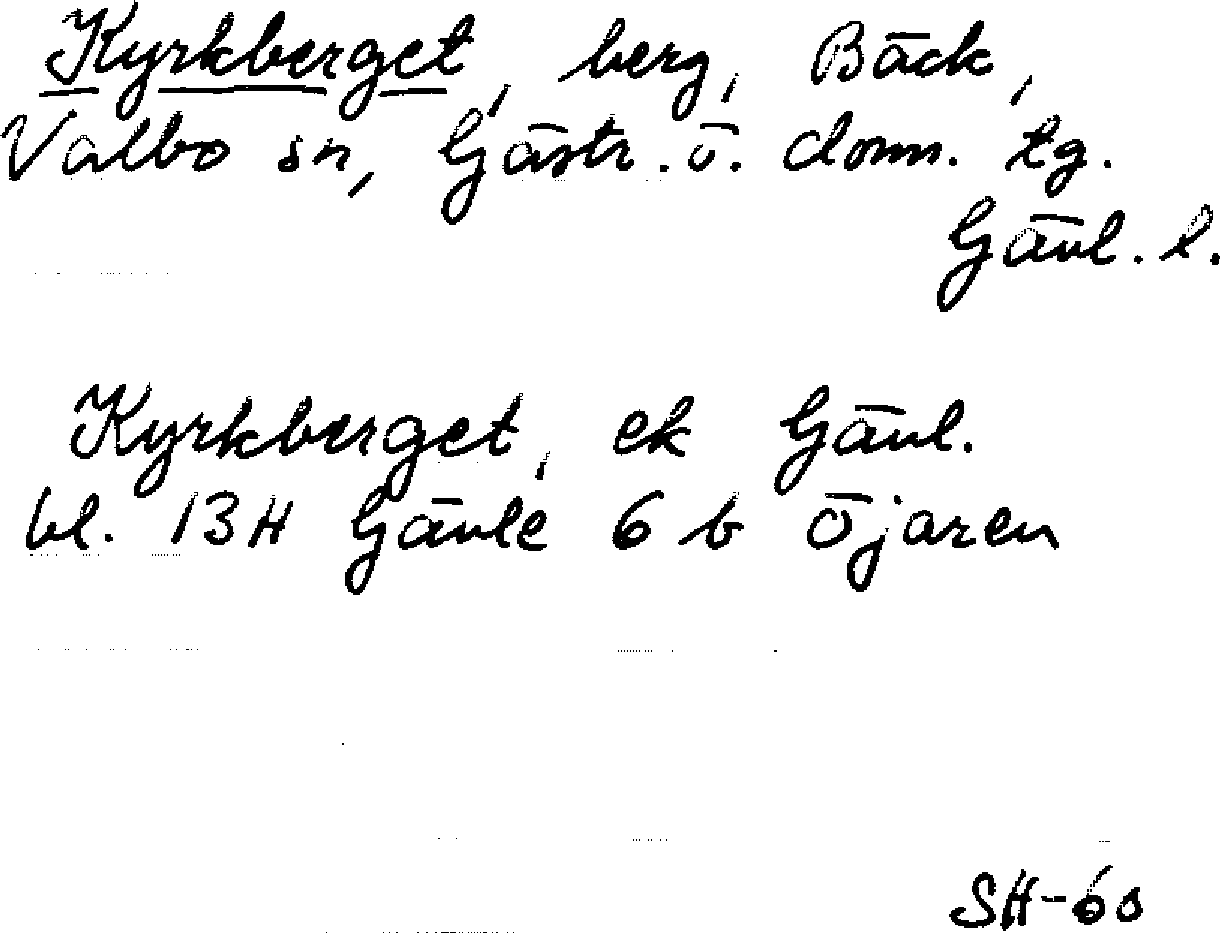 Kyrkberget, berg, Bäck,
Valbo sn, Gästr. ö. doms. tg.
Gävl. l.
Kyrkberget, ek Gävl.
bl. 13H Gävle 6 b Öjaren
SH-60